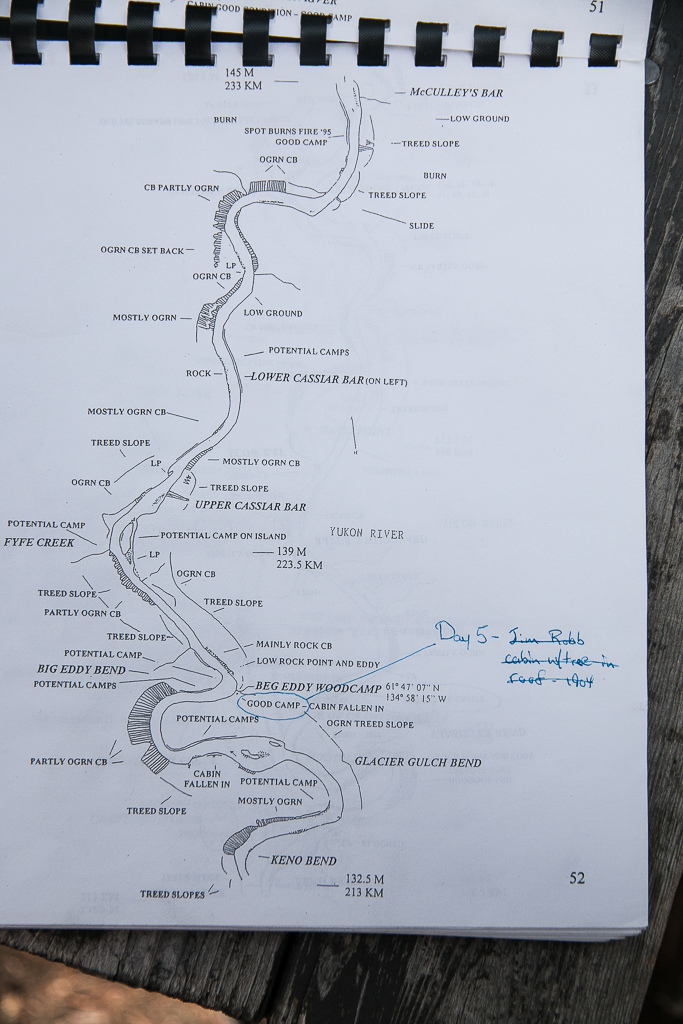 RIVER
51
CABIN GOOD CONDITION - GOOD CAMP
145 M
233 KM
McCULLEY'S BAR
BURN
LOW GROUND
SPOT BURNS FIRE '95
GOOD CAMP
TREED SLOPE
OGRN CB
BURN
CB PARTLY OGRN
TREED SLOPE
SLIDE
OGRN CB SET BACK
LP
OGRN CB
LOW GROUND
MOSTLY OGRN
POTENTIAL CAMPS
ROCK
LOWER CASSIAR BAR (ON LEFT)
MOSTLY OGRN CB
TREED SLOPE
LP
MOSTLY OGRN CB
OGRN CB
TREED SLOPE
UPPER CASSIAR BAR
POTENTIAL CAMP
FYFE CREEK
POTENTIAL CAMP ON ISLAND
YUKON RIVER
LP
139 M
223.5 KM
OGRN CB
TREED SLOPE
TREED SLOPE
PARTLY OGRN CB
TREED SLOPE
Day 5 - Jim Robb
cabin w/tree in
roof - 1904
MAINLY ROCK CB
POTENTIAL CAMP
LOW ROCK POINT AND EDDY
BIG EDDY BEND
POTENTIAL CAMPS
BEG EDDY WOODCAMP
61° 47' 07" N
134° 58' 15" W
GOOD CAMP - CABIN FALLEN IN
POTENTIAL CAMPS
OGRN TREED SLOPE
PARTLY OGRN CB
GLACIER GULCH BEND
CABIN
FALLEN IN
POTENTIAL CAMP
MOSTLY OGRN
TREED SLOPE
KENO BEND
132.5 M
213 KM
52
TREED SLOPES